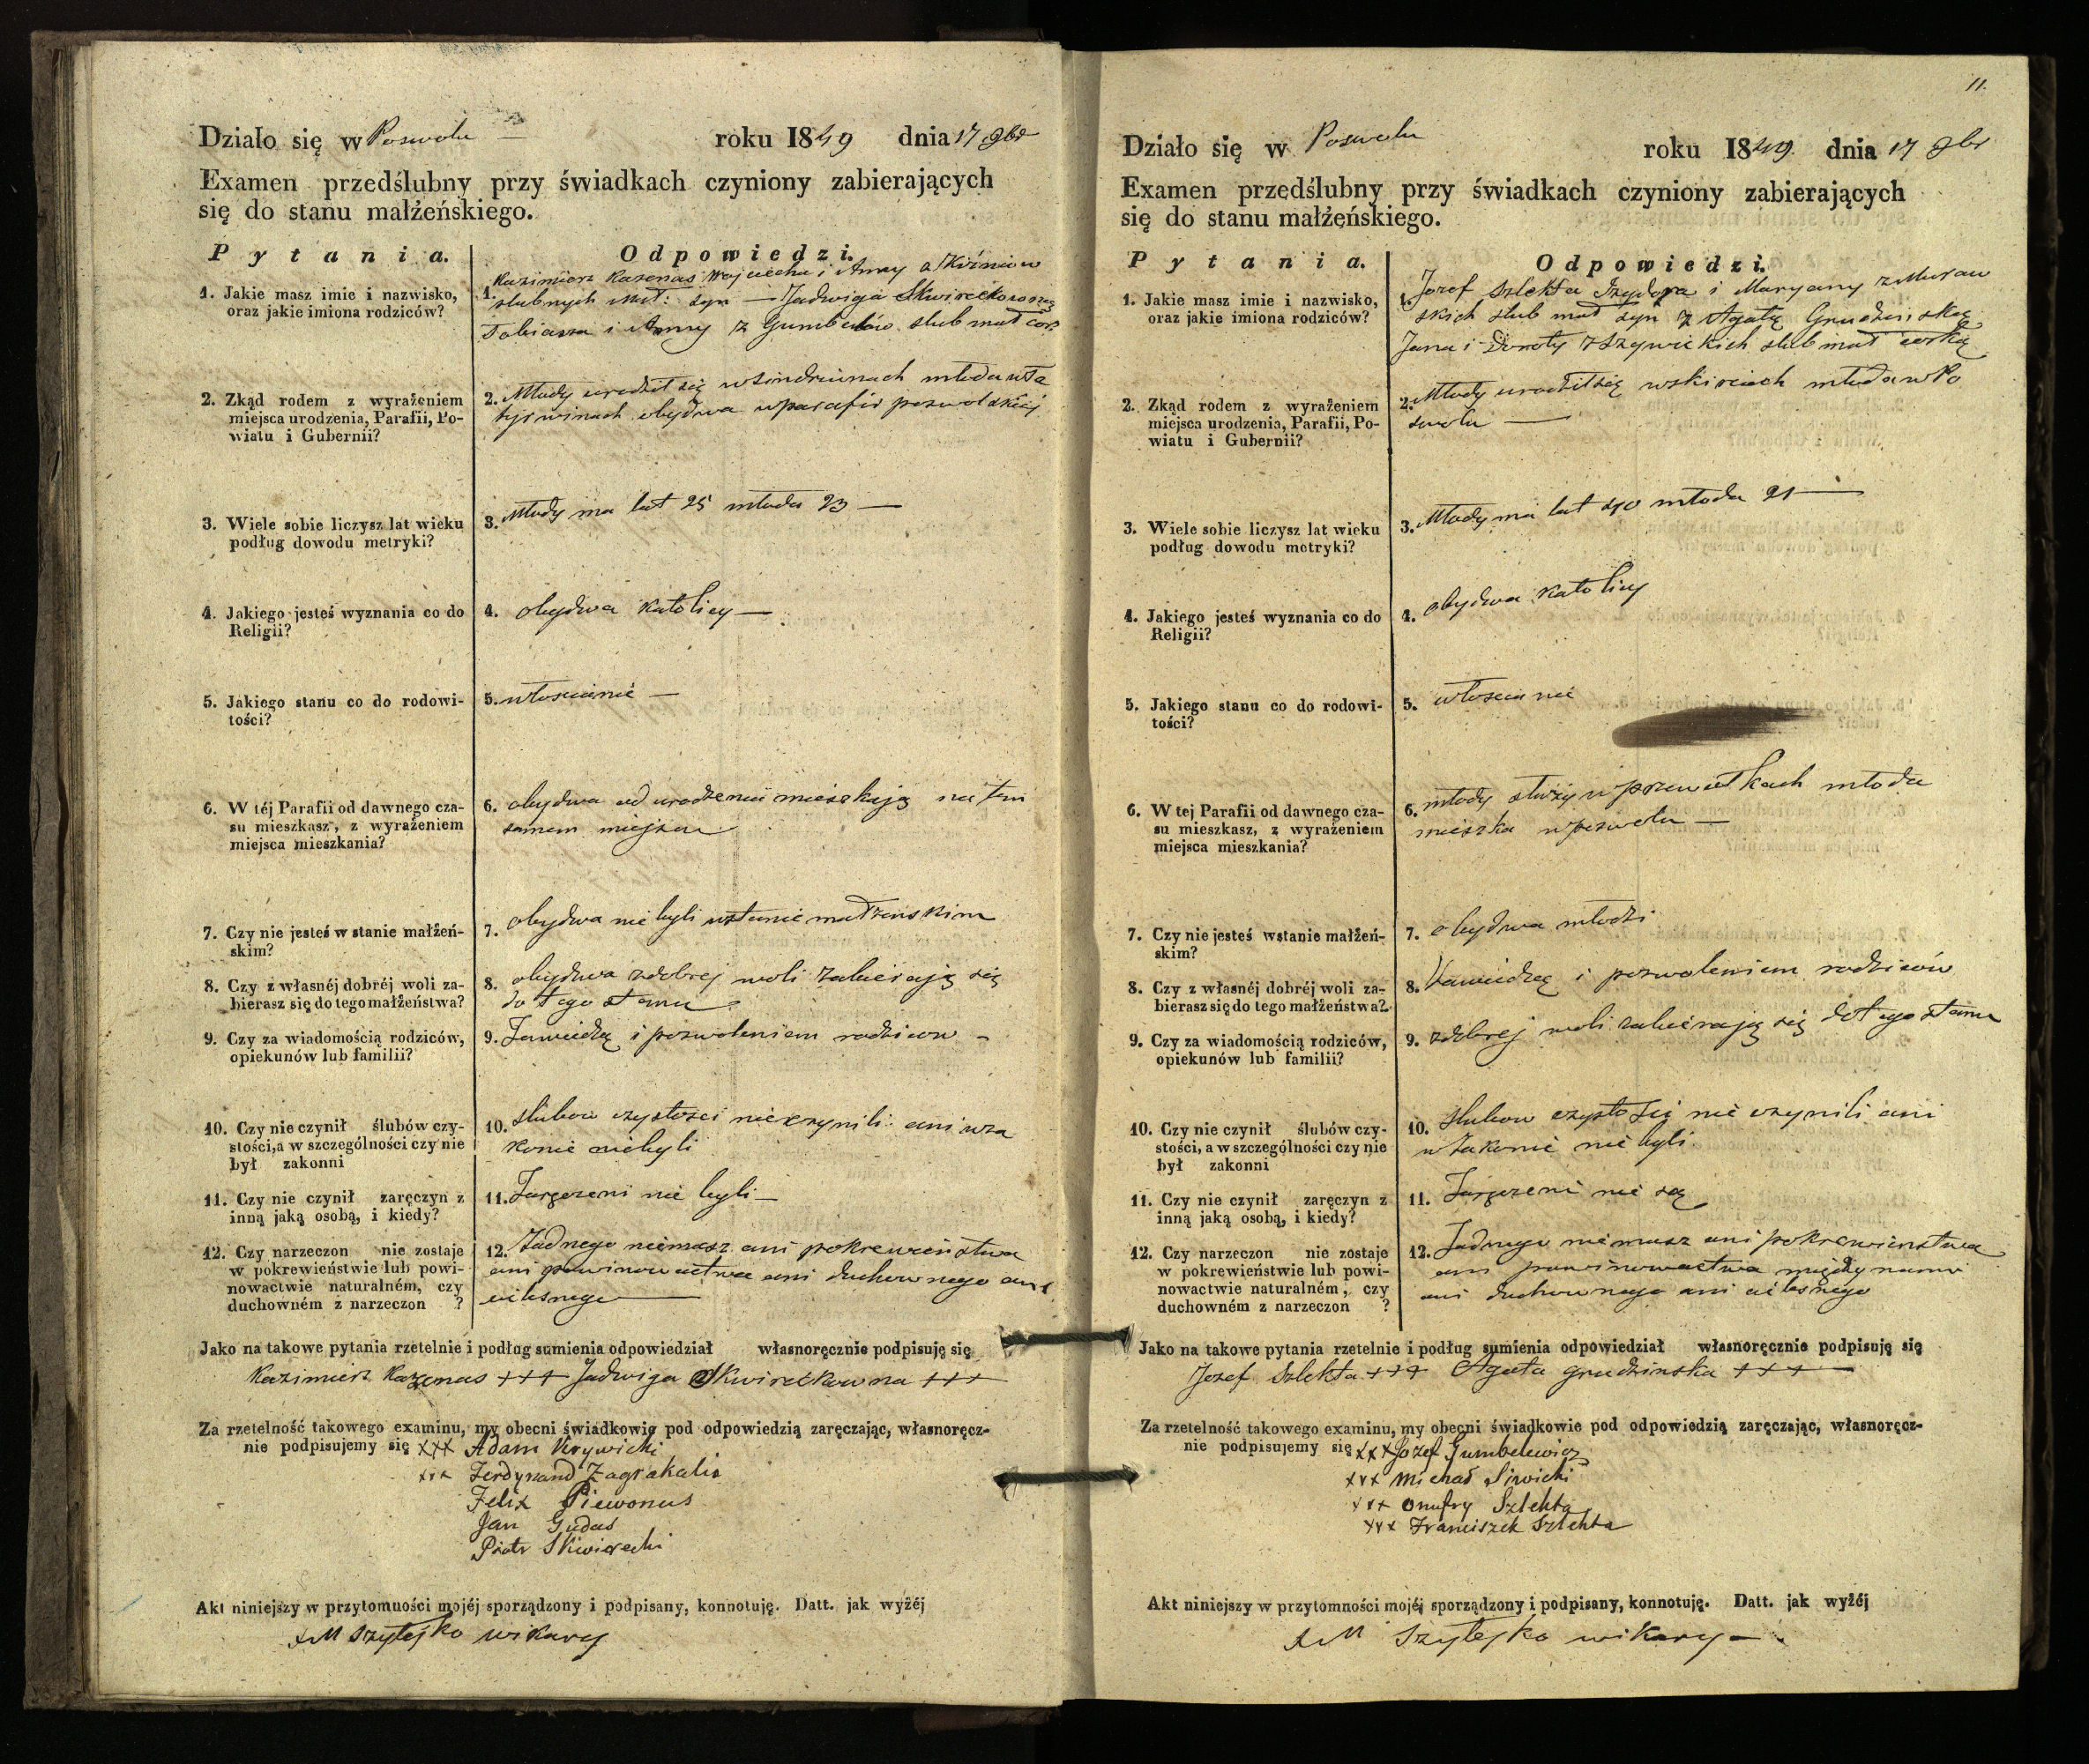 Działo się w Poswolu — roku 1849 dnia 17 9br
Examen przedślubny przy świadkach czyniony zabierających
się do stanu małżeńskiego.
Pytania. Odpowiedzi.
1. Jakie masz imie i nazwisko,
oraz jakie imiona rodziców?
1. Kazimierz Kazenas Wojciecha i Anny
slubnych mał: syn — Jadwiga
Tobiasza i Anny z Gumbelów slub mał
2. Zkąd rodem z wyrażeniem
miejsca urodzenia, Parafii, Po-
wiatu i Gubernii?
2. Młody urodził się młoda
obydwa w parafii poswolskiej
3. Wiele sobie liczysz lat wieku
podług dowodu metryki?
3. Młody ma lat 25 młoda 23 —
4. Jakiego jesteś wyznania co do
Religii?
4. obydwa Katolicy —
5. Jakiego stanu co do rodowi-
tości?
5. włoscianie —
6. W téj Parafii od dawnego cza-
su mieszkasz, z wyrażeniem
miejsca mieszkania?
6. obydwa od urodzenia mieszkają na tem
samem miejscu
7. Czy nie jesteś w stanie małżeń-
skim?
7. obydwa nie byli w stanie małzenskim
8. Czy z własnéj dobréj woli za-
bierasz się do tego małżeństwa?
8. obydwa z dobrej woli zabierają się
do tego stanu
9. Czy za wiadomością rodziców,
opiekunów lub familii?
9. Zawiedzą i pozwoleniem rodzicow —
10. Czy nie czynił ślubów czy-
stości, a w szczególności czy nie
był zakonni
10. slubow czystosci nieczynili ani w za
konie niebyli
11. Czy nie czynił zaręczyn z
inną jaką osobą, i kiedy?
11. Zaręczeni nie byli —
12. Czy narzeczon nie zostaje
w pokrewieństwie lub powi-
nowactwie naturalném, czy
duchowném z narzeczon ?
12. Żadnego niemasz ani pokrewieństwa
ani powinowactwa ani duchownego ani
cielesnego —
Jako na takowe pytania rzetelnie i podług sumienia odpowiedział własnoręcznie podpisuję się
Kazimierz Kazenas +++ Jadwiga Skwireckowna +++
Za rzetelność takowego examinu, my obecni świadkowie pod odpowiedzią zaręczając, własnoręcz-
nie podpisujemy się xxx Adam Krywicki
xxx Ferdynand Zagrakalis
Felix Piewonus
Jan Gudas
Piotr Skwirecki
Akt niniejszy w przytomności mojéj sporządzony i podpisany, konnotuję. Datt. jak wyżéj
XM Szylejko wikary
11.
Działo się w Poswolu roku 1849. dnia 17 9br
Examen przedślubny przy świadkach czyniony zabierających
się do stanu małżeńskiego.
Pytania. Odpowiedzi.
1. Jakie masz imie i nazwisko,
oraz jakie imiona rodziców?
1. Jozef Szlekta Izydora i Maryany z Muraw
skich slub mał syn z Agatą Grudzinską
Jana i Doroty z Szywickich slub mał corką
2. Zkąd rodem z wyrażeniem
miejsca urodzenia, Parafii, Po-
wiatu i Gubernii?
2. Młody urodził się młoda w Po
swolu —
3. Wiele sobie liczysz lat wieku
podług dowodu metryki?
3. Młody ma lat 40 młoda 21 —
4. Jakiego jesteś wyznania co do
Religii?
4. obydwa Katolicy
5. Jakiego stanu co do rodowi-
tości?
5. włoscianie
6. W tej Parafii od dawnego cza-
su mieszkasz, z wyrażeniem
miejsca mieszkania?
6. młody służy w młoda
mieszka w poswolu —
7. Czy nie jesteś wstanie małżeń-
skim?
7. obydwa młodzi
8. Czy z własnéj dobréj woli za-
bierasz się do tego małżeństwa?
8. Zawiedzą i pozwoleniem rodzicow
9. Czy za wiadomością rodziców,
opiekunów lub familii?
9. z dobrej woli zabierają się do tego stanu
10. Czy nie czynił ślubów czy-
stości, a w szczególności czy nie
był zakonni
10. slubow czystości nie czynili ani
w Zakonie nie byli
11. Czy nie czynił zaręczyn z
inną jaką osobą, i kiedy?
11. Zaręczeni nie są
12. Czy narzeczon nie zostaje
w pokrewieństwie lub powi-
nowactwie naturalném, czy
duchowném z narzeczon ?
12. Żadnego niemasz ani pokrewienstwa
ani powinowactwa między nami
ani duchownego ani cielesnego
Jako na takowe pytania rzetelnie i podług sumienia odpowiedział własnoręcznie podpisuję się
Jozef Szlekta +++ Agata Grudzinska +++ —
Za rzetelność takowego examinu, my obecni świadkowie pod odpowiedzią zaręczając, własnoręcz-
nie podpisujemy się xxx Jozef Gumbelewicz
xxx Michał Siwicki
xxx Onufry Szlekta
xxx Franciszek Szlekta
Akt niniejszy w przytomności mojéj sporządzony i podpisany, konnotuję. Datt. jak wyżéj
XM Szylejko wikary —